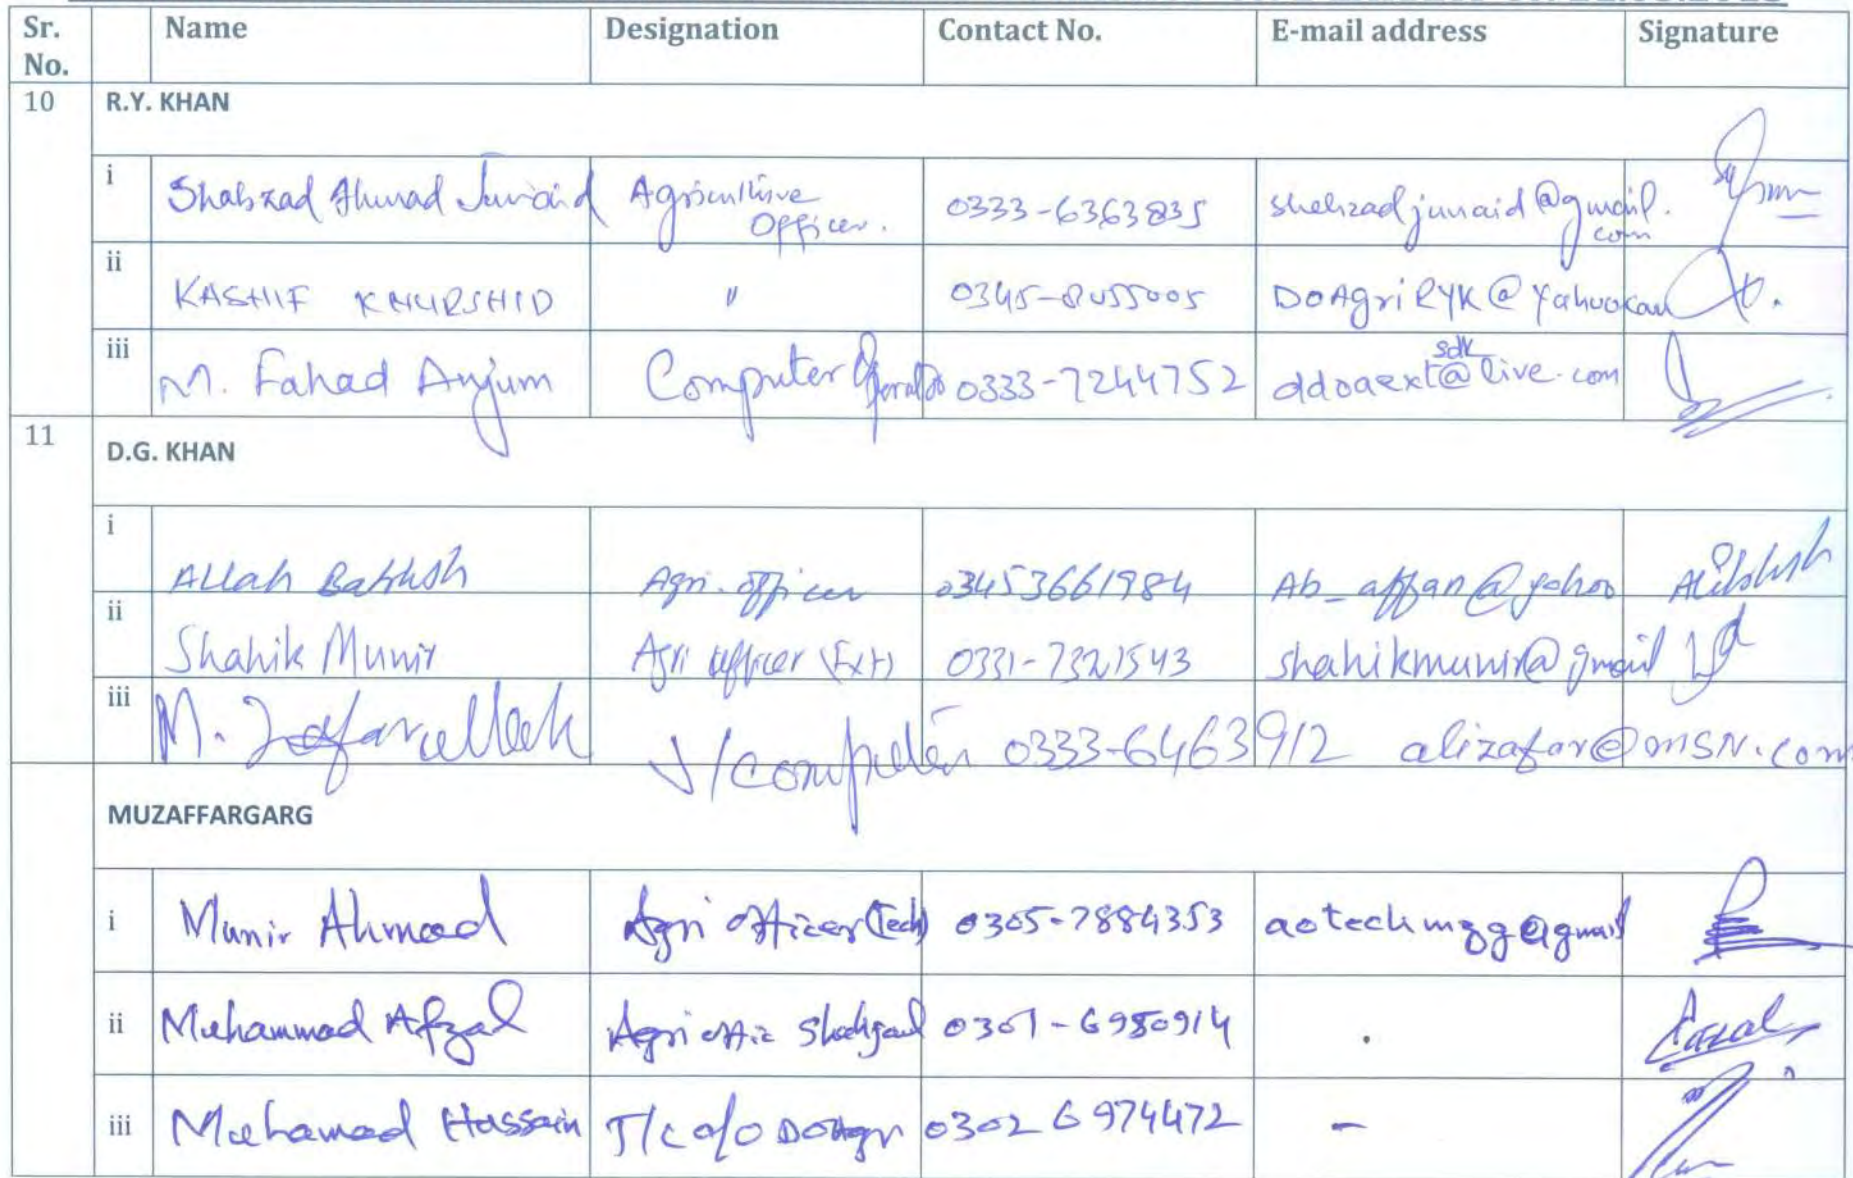 Sr. No. Name Designation Contact No. E-mail address Signature
10 R.Y. KHAN
i Shahzad Ahmad Junaid Agriculture Officer. 0333-6363835 shehzadjunaid@gmail.com
ii KASHIF KHURSHID " 0345-8455005 DOAgriRYK@Yahoo
iii M. Fahad Anjum Computer 0333-7244752 ddoaextsdk@live.com
11 D.G. KHAN
i Allah Bakhsh Agri. officer 03453661984 Ab_affan@yahoo
ii Shahik Munir Agri officer (Ext) 0331-7321543 shahikmunir@gmail
iii M. Zafarullah J/computer 0333-6463912 alizafar@MSN.com
MUZAFFARGARG
i Munir Ahmad Agri officer (Tech) 0305-7884353 aotechmzg@gmail
ii Muhammad Afzal Agri 0301-6980914 .
iii Muhamad Hussain J/C o/o DOAgr 0302 6974472 -